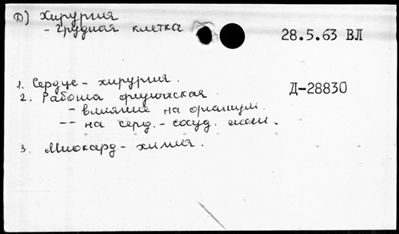 Д) Хирургия
- Грудная клетка
28.5.63 ВЛ
1. Сердце - хирургия.
Д-28830
2. Работа физическая
- влияние на организм.
-- на серд.-сосуд.
3. Миокард - химия.